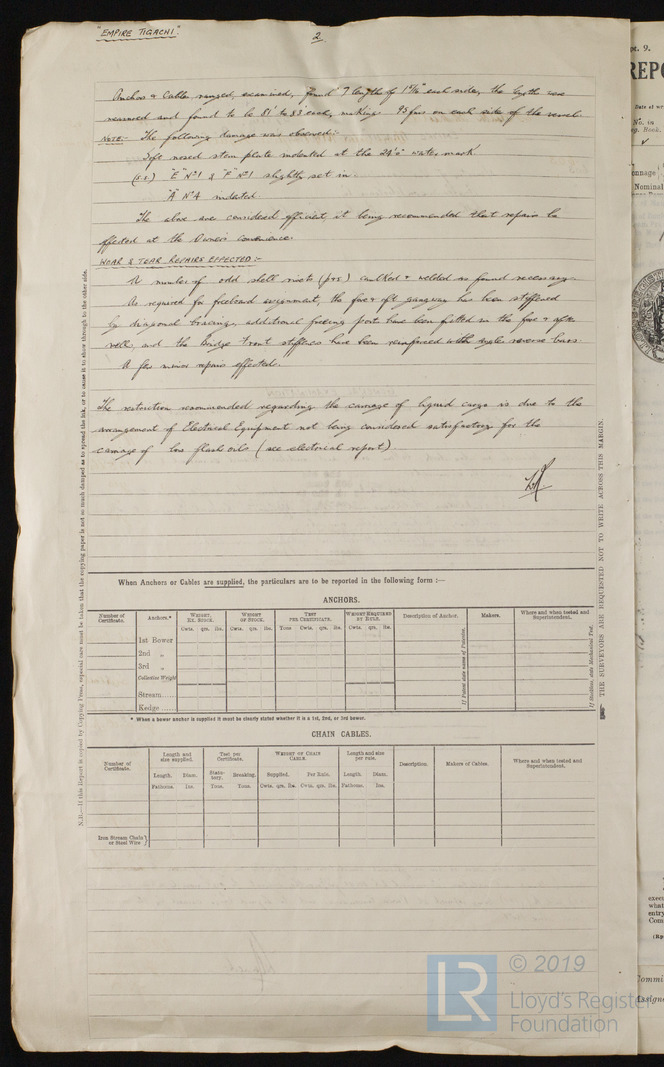 "EMPIRE TIGACHI".
2
Anchors & Cables ranged, examined, found 7 lengths of 1 11/16" each side, the lengths were
measured and found to be 81' to 83' each, making 95 fms on each side of the vessel.
NOTE:- The following damage was observed:-
Soft nosed stem plate indented at the 24'0" water mark
(S.S.) "E" No 1 & "F" No 1 slightly set in.
"A" No 4 indented
The above are considered efficient, it being recommended that repairs be
effected at the Owner's convenience.
WEAR & TEAR REPAIRS EFFECTED:-
A number of odd shell rivets (p&s) caulked & welded as found necessary.
As required for freeboard assignment, the fore & aft gangway has been stiffened
by diagonal bracing, additional freeing port have been fitted in the fore & after
wells, and the Bridge front stiffeners have been reinforced with angle reverse bars.
A few minor repairs effected.
The restriction recommended regarding the carriage of liquid cargo is due to the
arrangement of Electrical Equipment not being considered satisfactory for the
carriage of low flash oils (see electrical report).
N.B.—If this Report is copied by Copying Press, especial care must be taken that the copying paper is not so much damped as to spread the ink, or to cause it to show through to the other side.
THE SURVEYORS ARE REQUESTED NOT TO WRITE ACROSS THIS MARGIN.
When Anchors or Cables are supplied, the particulars are to be reported in the following form :—
ANCHORS.
Number of Certificate. Anchors.* WEIGHT. EX. STOCK. WEIGHT OF STOCK. TEST PER CERTIFICATE. WEIGHT REQUIRED BY RULE. Description of Anchor. Makers. Where and when tested and Superintendent.
Cwts. qrs. lbs. Cwts. qrs. lbs. Tons cwts. qrs. lbs. Cwts. qrs. lbs.
1st Bower
2nd "
3rd "
Collective Weight
Stream
Kedge
If Patent state name of Patentee.
If Machine, state Mechanical Test.
* When a bower anchor is supplied it must be clearly stated whether it is a 1st, 2nd, or 3rd bower.
CHAIN CABLES.
Number of Certificate. Length and size supplied. Test per Certificate. WEIGHT OF CHAIN CABLE. Length and size per rule. Description. Makers of Cables. Where and when tested and Superintendent.
Length. Diam. Statutory. Breaking. Supplied. Per Rule. Length. Diam.
Fathoms. Ins. Tons. Tons. Cwts. qrs. lbs. Cwts. qrs. lbs. Fathoms. Ins.
Iron Stream Chain or Steel Wire
© 2019
LR
Lloyd's Register
Foundation